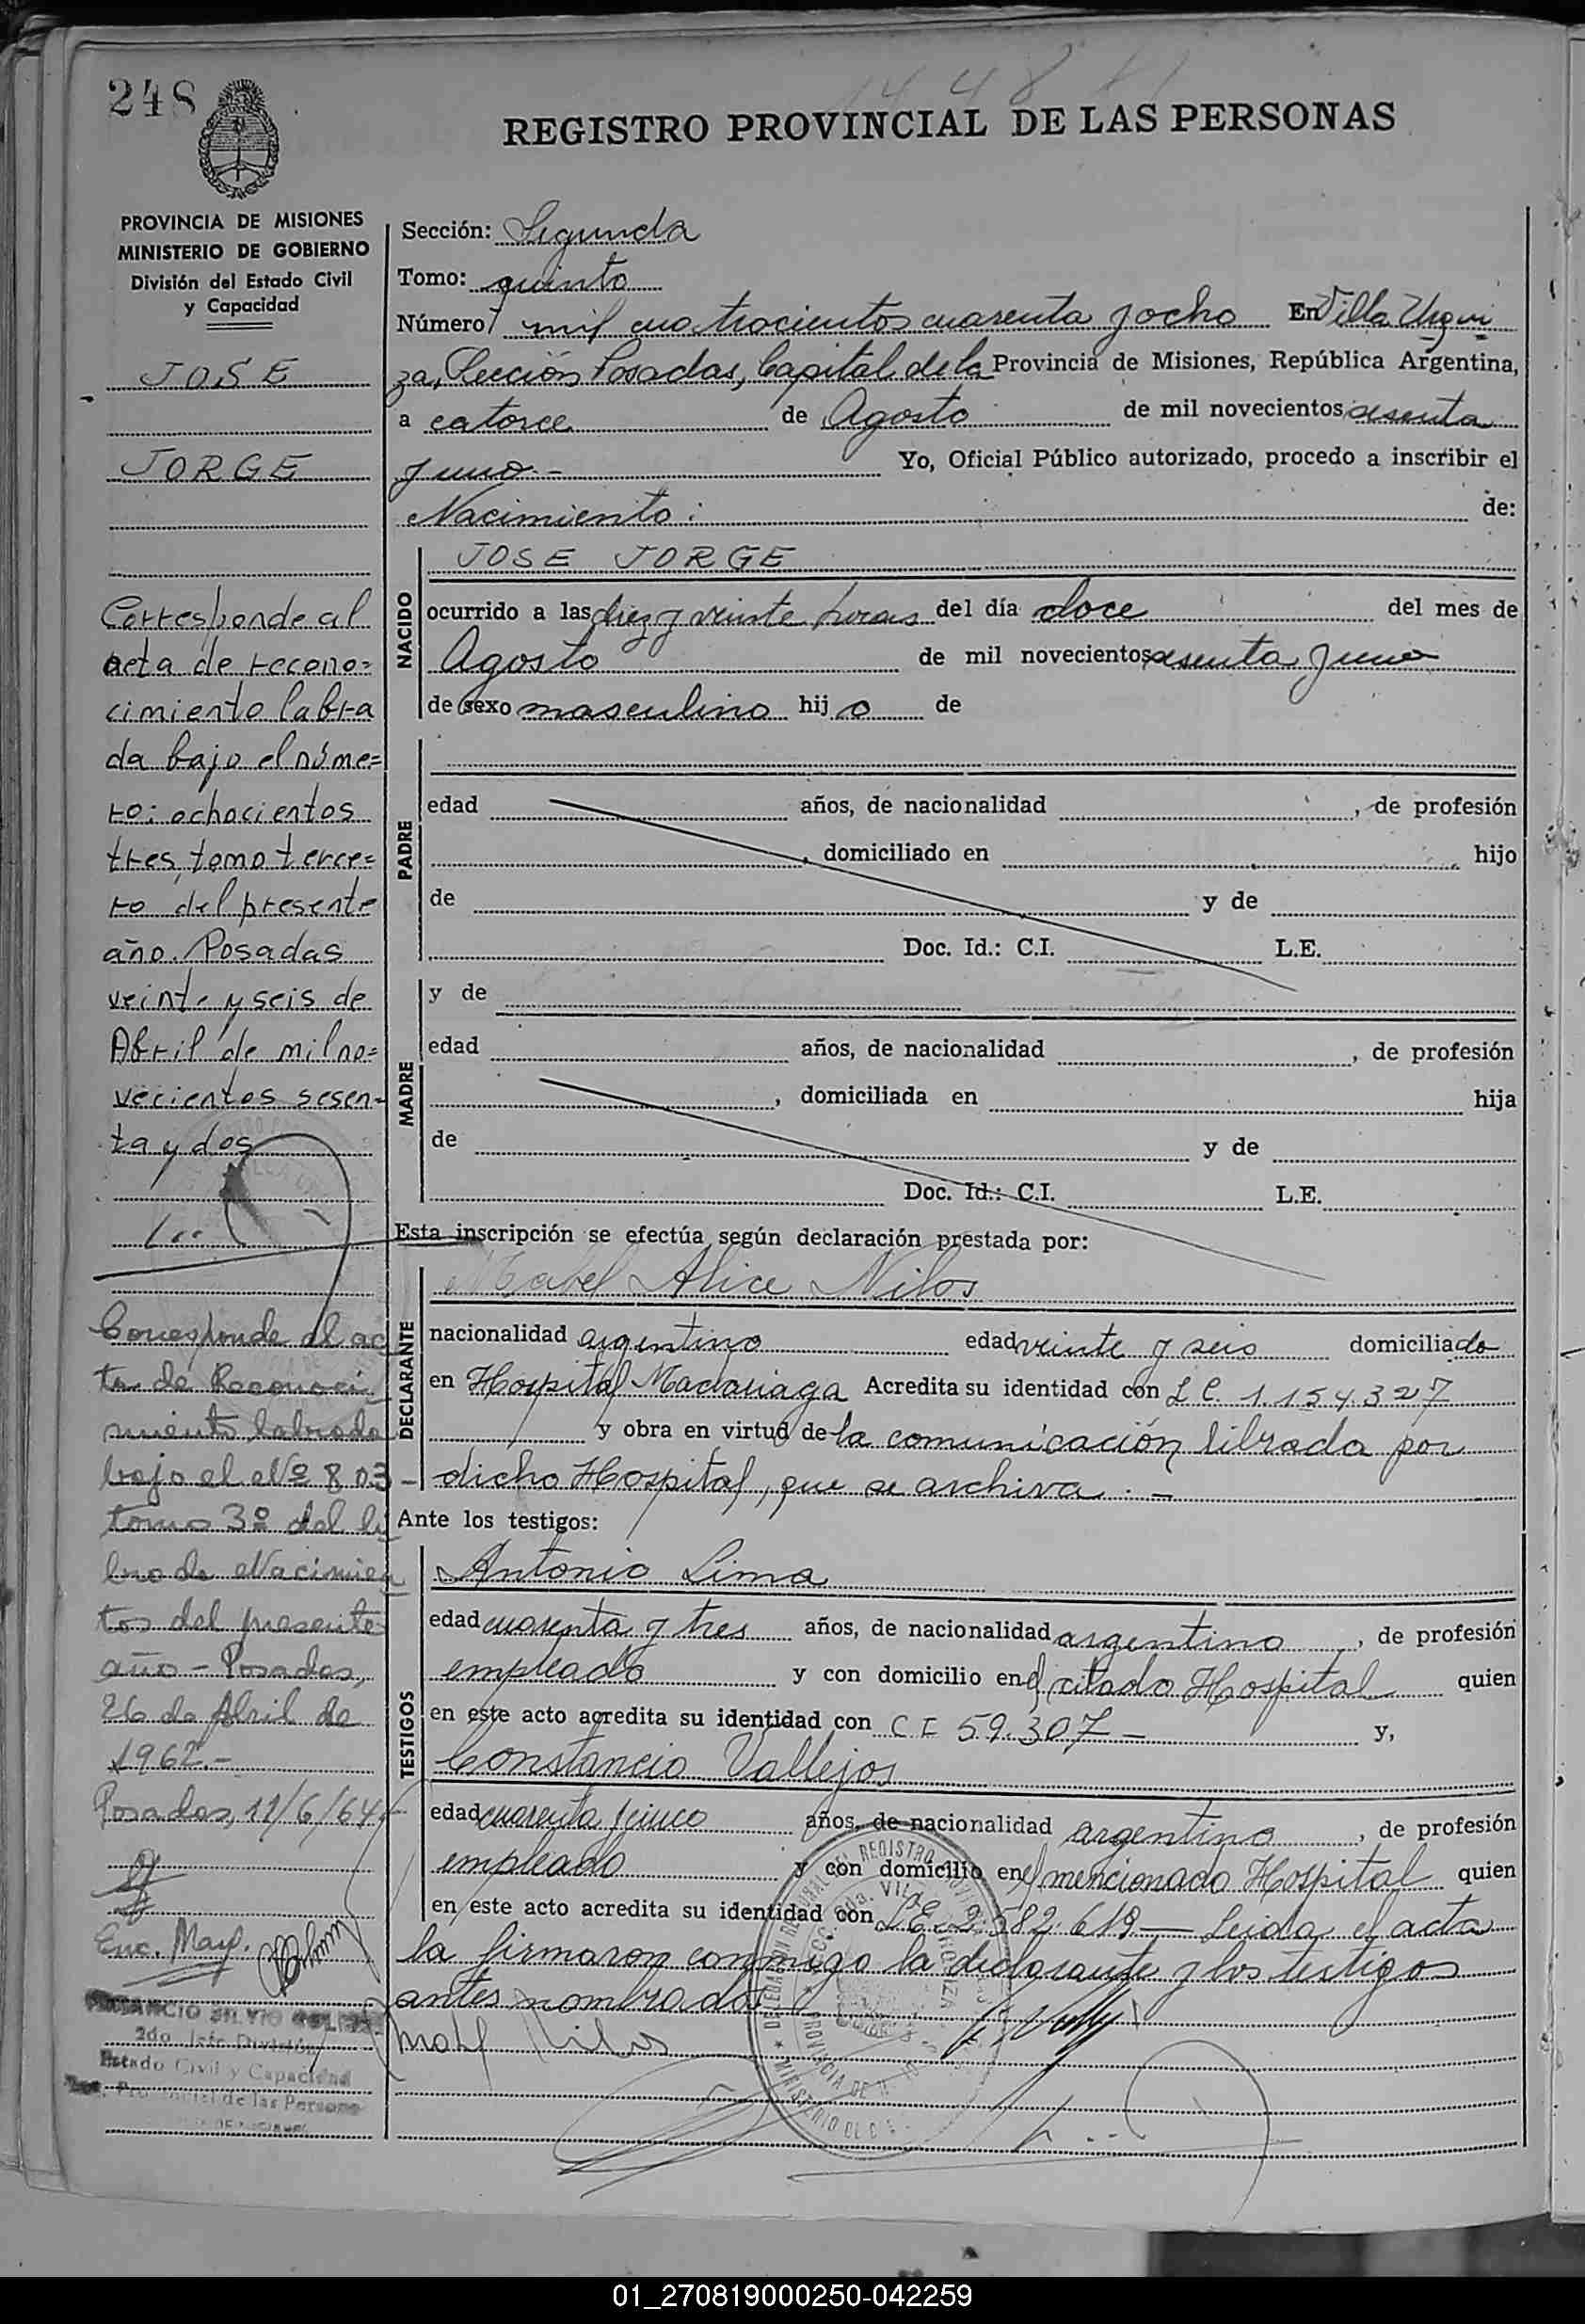 248
1448
REGISTRO PROVINCIAL DE LAS PERSONAS
PROVINCIA DE MISIONES
MINISTERIO DE GOBIERNO
División del Estado Civil
y Capacidad
JOSE
JORGE
Corresponde al
acta de recono=
cimiento labra
da bajo el núme=
ro: ochocientos
tres, tomo terce=
ro del presente
año. Posadas
veinte y seis de
Abril de mil no=
vecientos sesen-
ta y dos
Corresponde al ac
ta de Reconoci
miento labrado
bajo el Nº 803-
tomo 3º del li
bro de Nacimien
tos del presente
año - Posadas,
26 de Abril de
1962.-
Posadas, 11/6/64
Enc. May.
2do. Jefe División
Estado Civil y Capacidad
Provincial de las Personas
Sección: Segunda
Tomo: quinto
Número mil cuatrocientos cuarenta y ocho En Villa Urqui
za, Sección Posadas, Capital de la Provincia de Misiones, República Argentina,
a catorce de Agosto de mil novecientos sesenta
y uno.- Yo, Oficial Público autorizado, procedo a inscribir el
Nacimiento: de:
NACIDO
JOSE JORGE
ocurrido a las diez y veinte horas del día doce del mes de
Agosto de mil novecientos sesenta y uno
de sexo masculino hijo de
PADRE
edad años, de nacionalidad , de profesión
, domiciliado en hijo
de y de
Doc. Id.: C.I. L.E.
MADRE
y de
edad años, de nacionalidad , de profesión
, domiciliada en hija
de y de
Doc. Id.: C.I. L.E.
Esta inscripción se efectúa según declaración prestada por:
DECLARANTE
Mabel Alice Nilos
nacionalidad argentina edad veinte y seis domiciliada
en Hospital Madariaga Acredita su identidad con L C. 1.154.327
y obra en virtud de la comunicación librada por
dicho Hospital, que se archiva.-
Ante los testigos:
TESTIGOS
Antonio Lima
edad cuarenta y tres años, de nacionalidad argentino, de profesión
empleado y con domicilio en el citado Hospital quien
en este acto acredita su identidad con C I 59.307- y,
Constancio Vallejos
edad cuarenta y cinco años, de nacionalidad argentino, de profesión
empleado y con domicilio en el mencionado Hospital quien
en este acto acredita su identidad con L.E. 2.582.619- Leida el acta
la firmaron conmigo la declarante y los testigos
antes nombrados
01_270819000250-042259